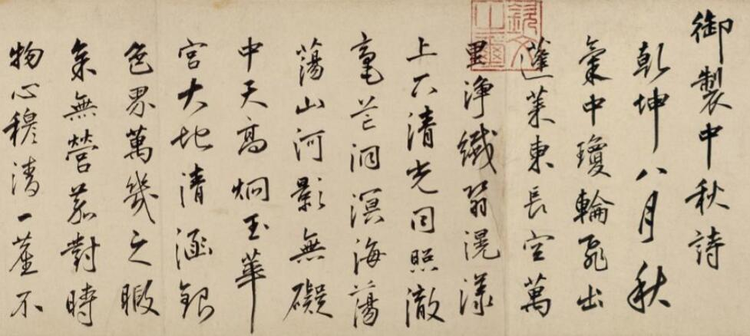 御製中秋詩
乾坤八月秋
氣中瓊輪飛出
蓬萊東長空萬
里淨纖翳滉漾
上下清光同照澈
毫芒洞溟海蕩
蕩山河影無礙
中天高炯玉華
宮大地清涵銀
色界萬幾之暇
余無營茲對時
物心穆清一塵不
欽文之璽